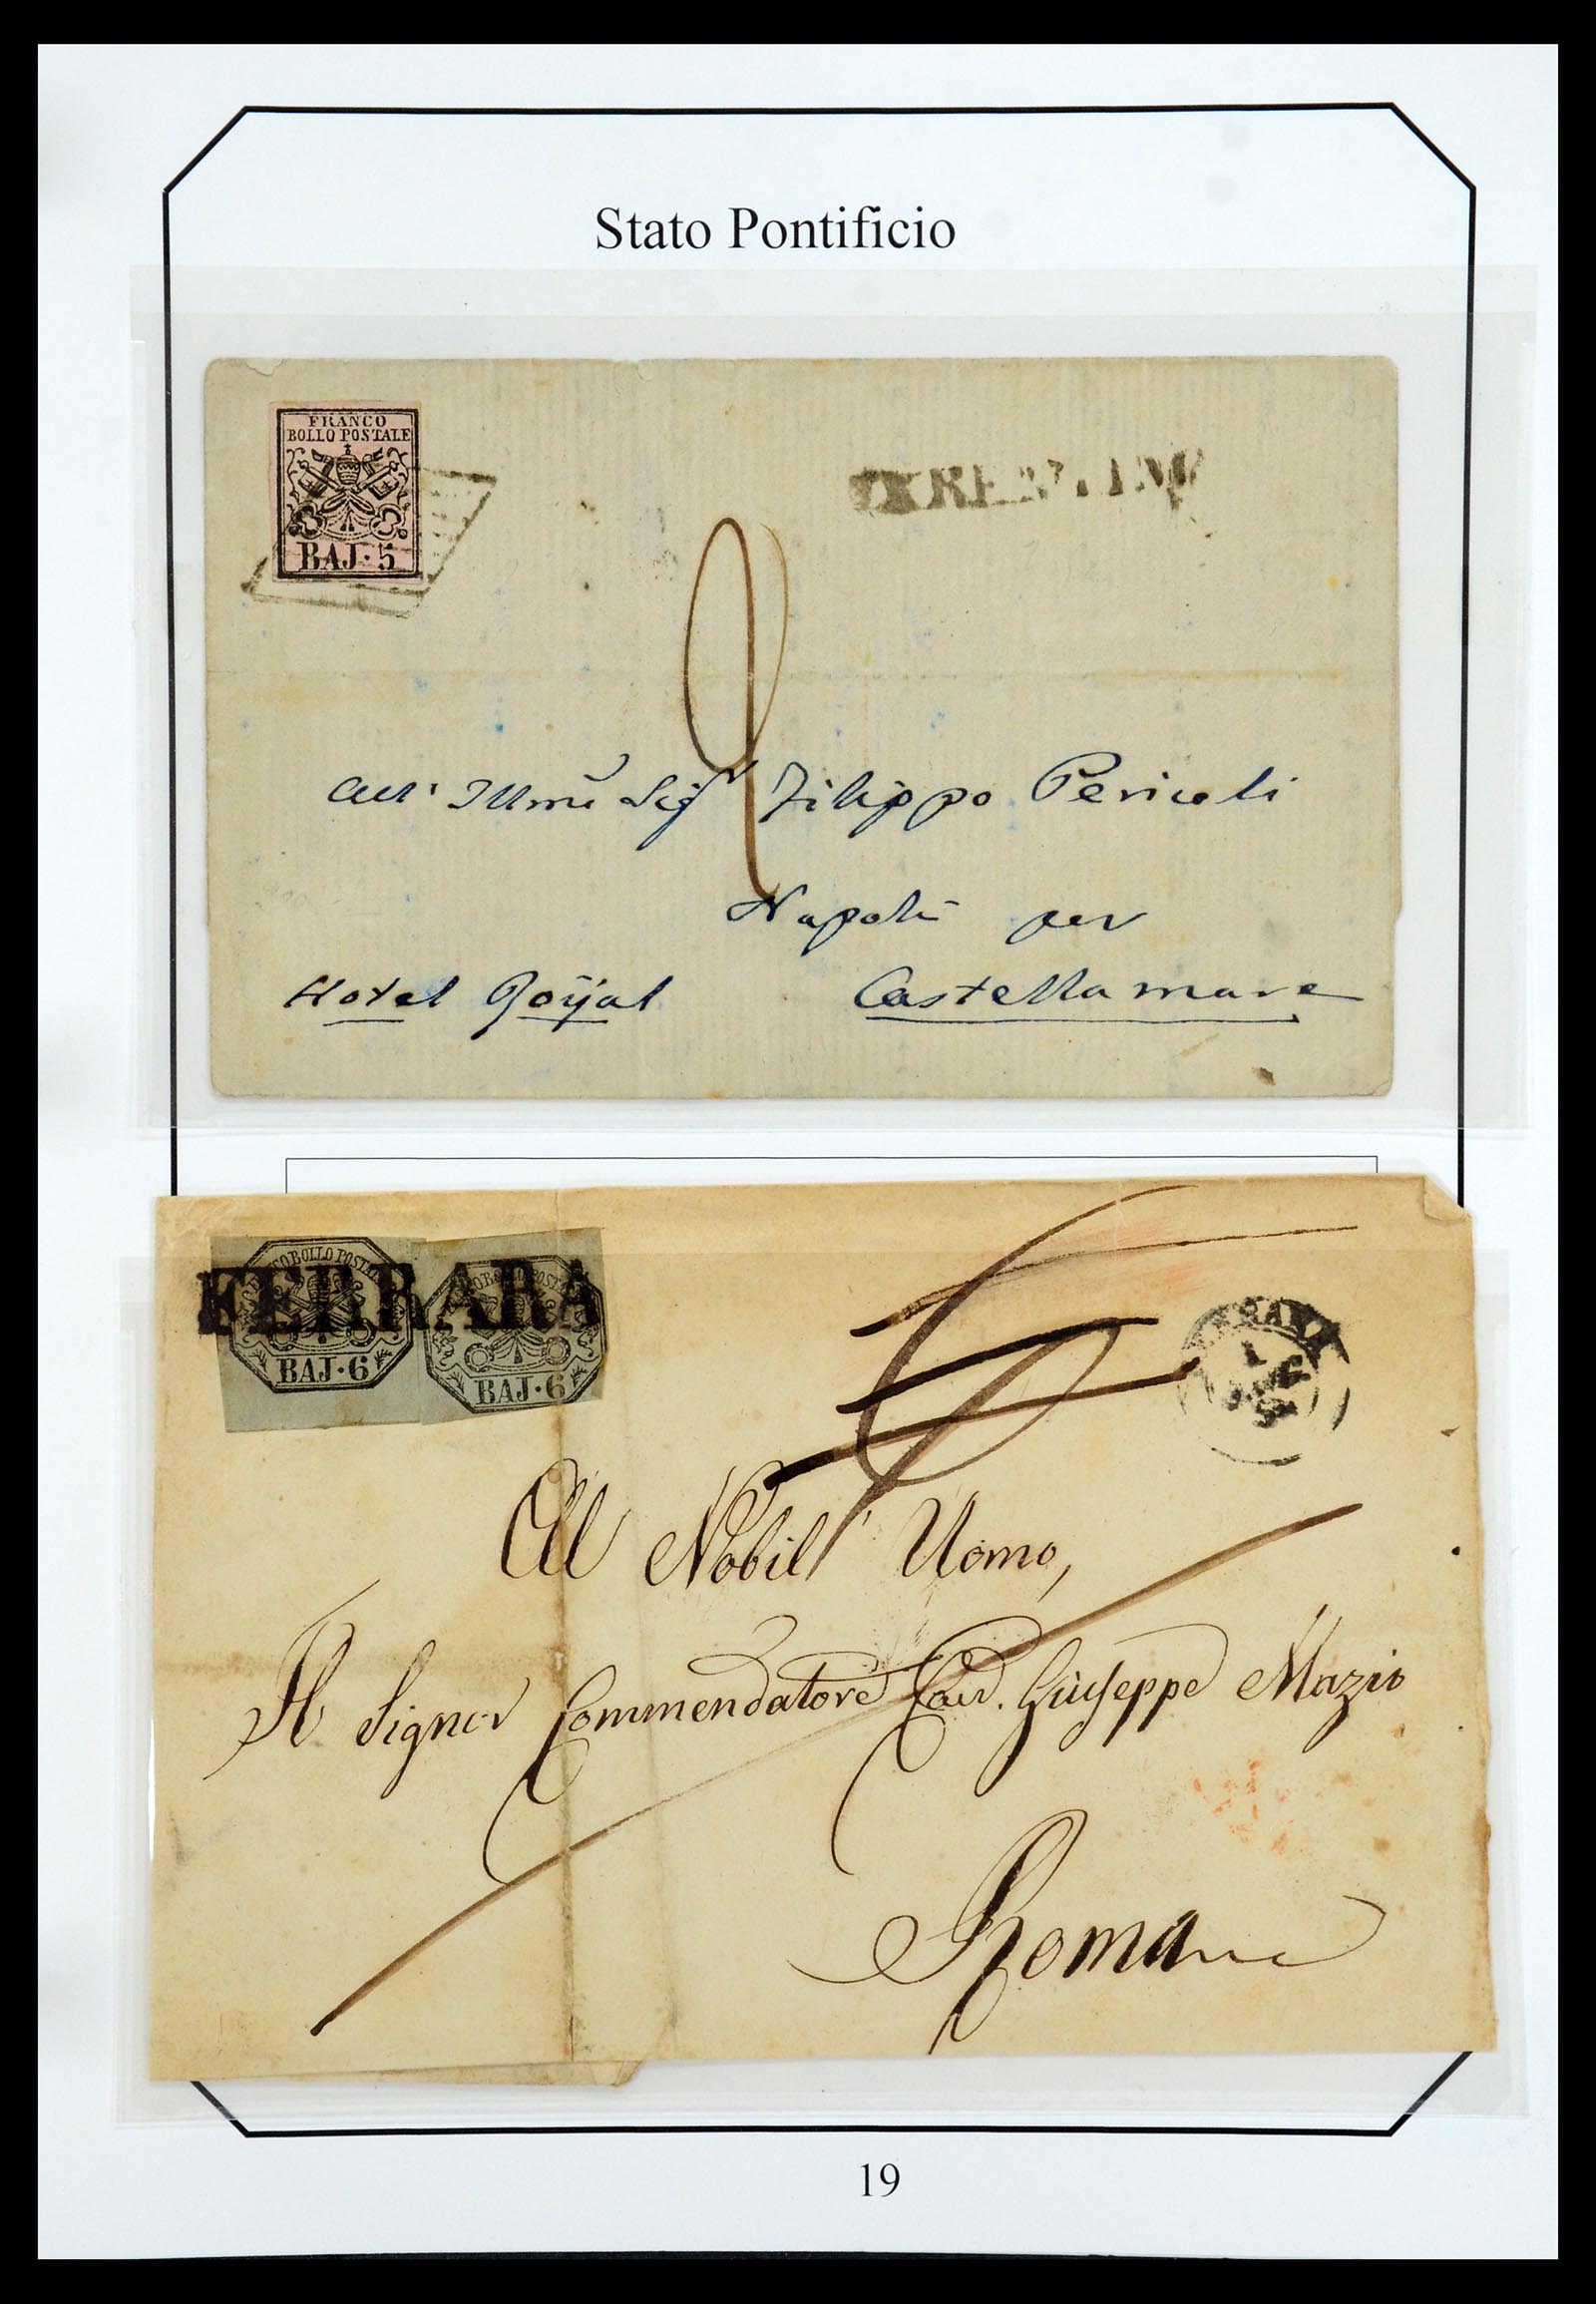 Stato Pontificio
FRANCO
BOLLO POSTALE
BAJ·5
All' Illmo Sigr Filippo Pericoli
Napoli per
Hotel Royal Castellamare
FRANCOBOLLO POSTALE
BAJ·6
BAJ·6
FERRARA
Al Nobil' Uomo,
Il Signor Commendatore Cav. Giuseppe Mazio
Roma
19